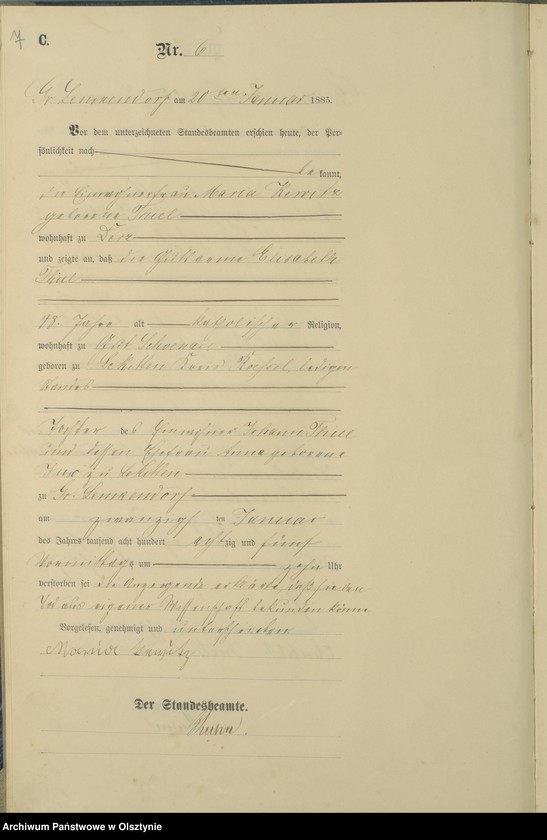 7 C.
Nr. 6
Gr. Lemkendorf am 20ten Januar 1885.
Vor dem unterzeichneten Standesbeamten erschien heute, der Per-
sönlichkeit nach
be kannt,
die Einwohnerfrau Maria
geborene Thiel
wohnhaft zu
und zeigte an, daß die Elisabeth
Thiel
48 Jahre alt katolischer Religion,
wohnhaft zu Schoenau
geboren zu Lekitten Kreis Roessel, ledigen
Standes
Tochter des Einwohner Johann Thiel
und dessen Ehefrau Anna geborene
zu Lekitten
zu Gr. Lemkendorf
am zwanzigsten Januar
des Jahres tausend acht hundert achtzig und fünf
Vormittags um zehn Uhr
verstorben sei die Anzeigende erklärt, daß sie den
Tod aus eigener Wissenschaft bekunden könne
Vorgelesen, genehmigt und unterschrieben
Der Standesbeamte.
Archiwum Państwowe w Olsztynie